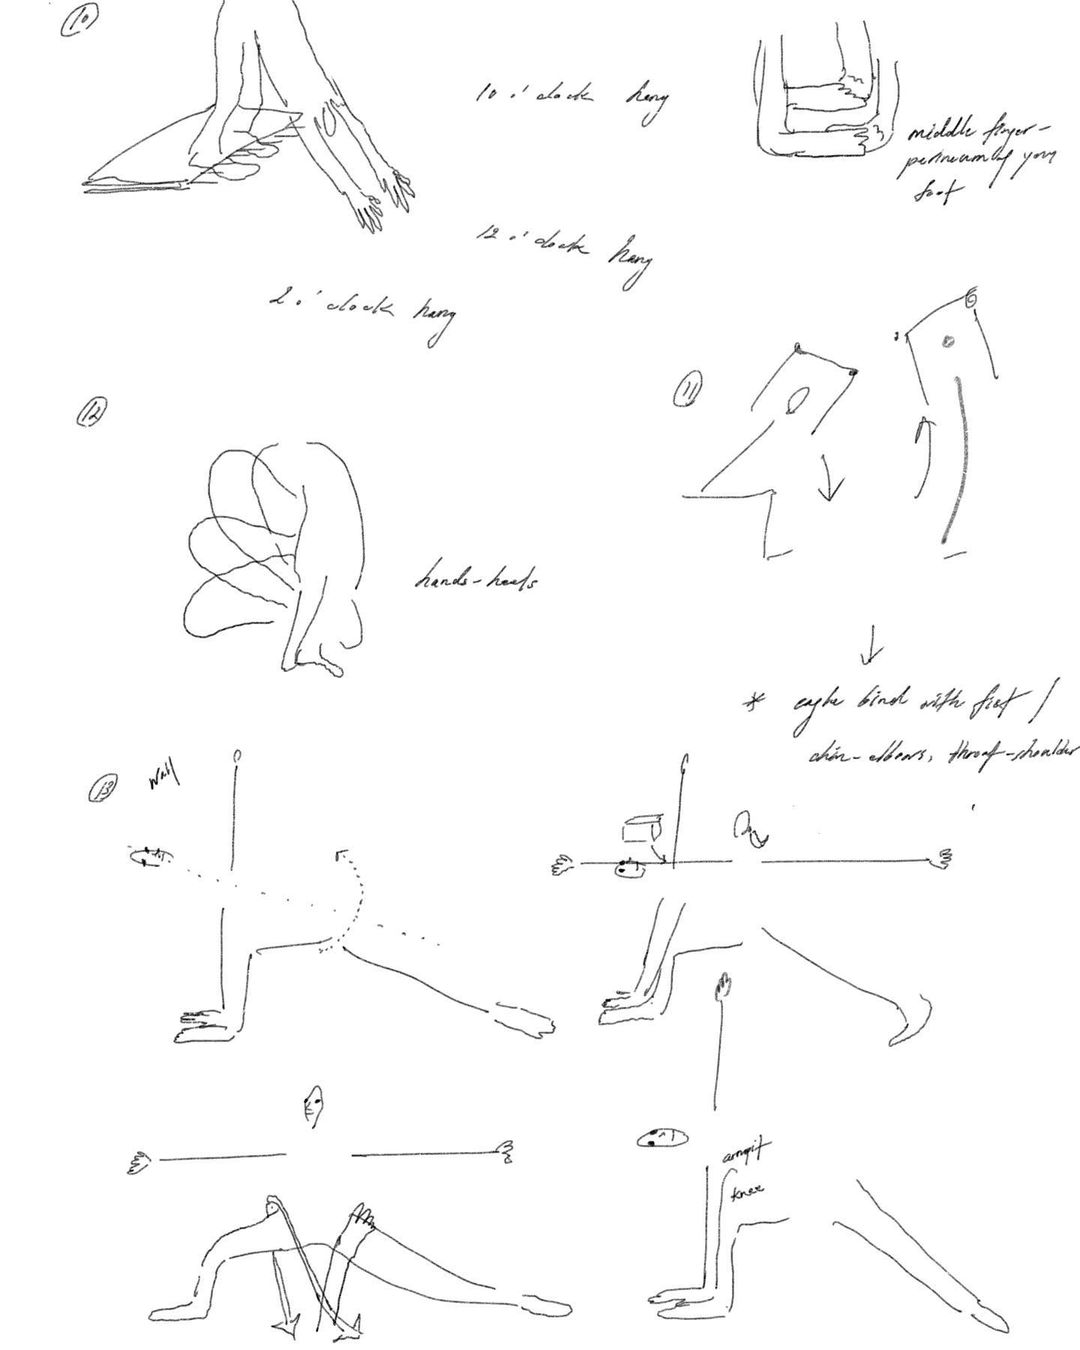 10
10 o'clock hang
middle finger-
perineum of your
foot
12 o'clock hang
2 o'clock hang
11
12
hands-heels
* eagle bind with fist /
chin-elbows, throat-shoulder
13
wall
armpit
knee